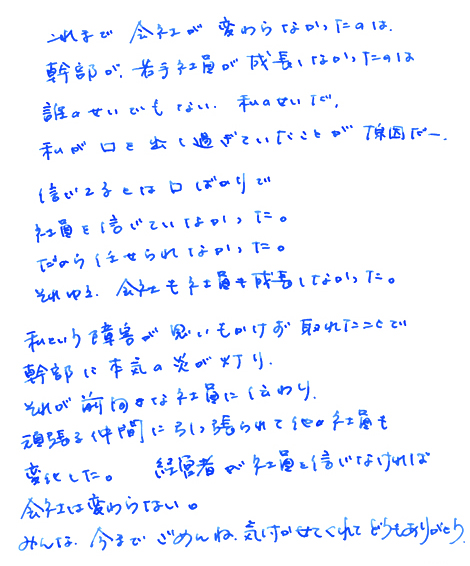 これまで 会社が 変わらなかったのは、
幹部が、若手社員が成長しなかったのは
誰のせいでもない、私のせいだ。
私が口を出し過ぎていたことが原因だー。
信じてるとは口ばかりで
社員を信じていなかった。
だから任せられなかった。
それゆえ、会社も社員も成長しなかった。
私という障害が思いもかけず取れたことで
幹部に本気の炎が灯り、
それが前向きな社員に伝わり、
頑張る仲間に引っ張られて他の社員も
変化した。 経営者が社員を信じなければ
会社は変わらない。
みんな、今までごめんね、気付かせてくれてどうもありがとう